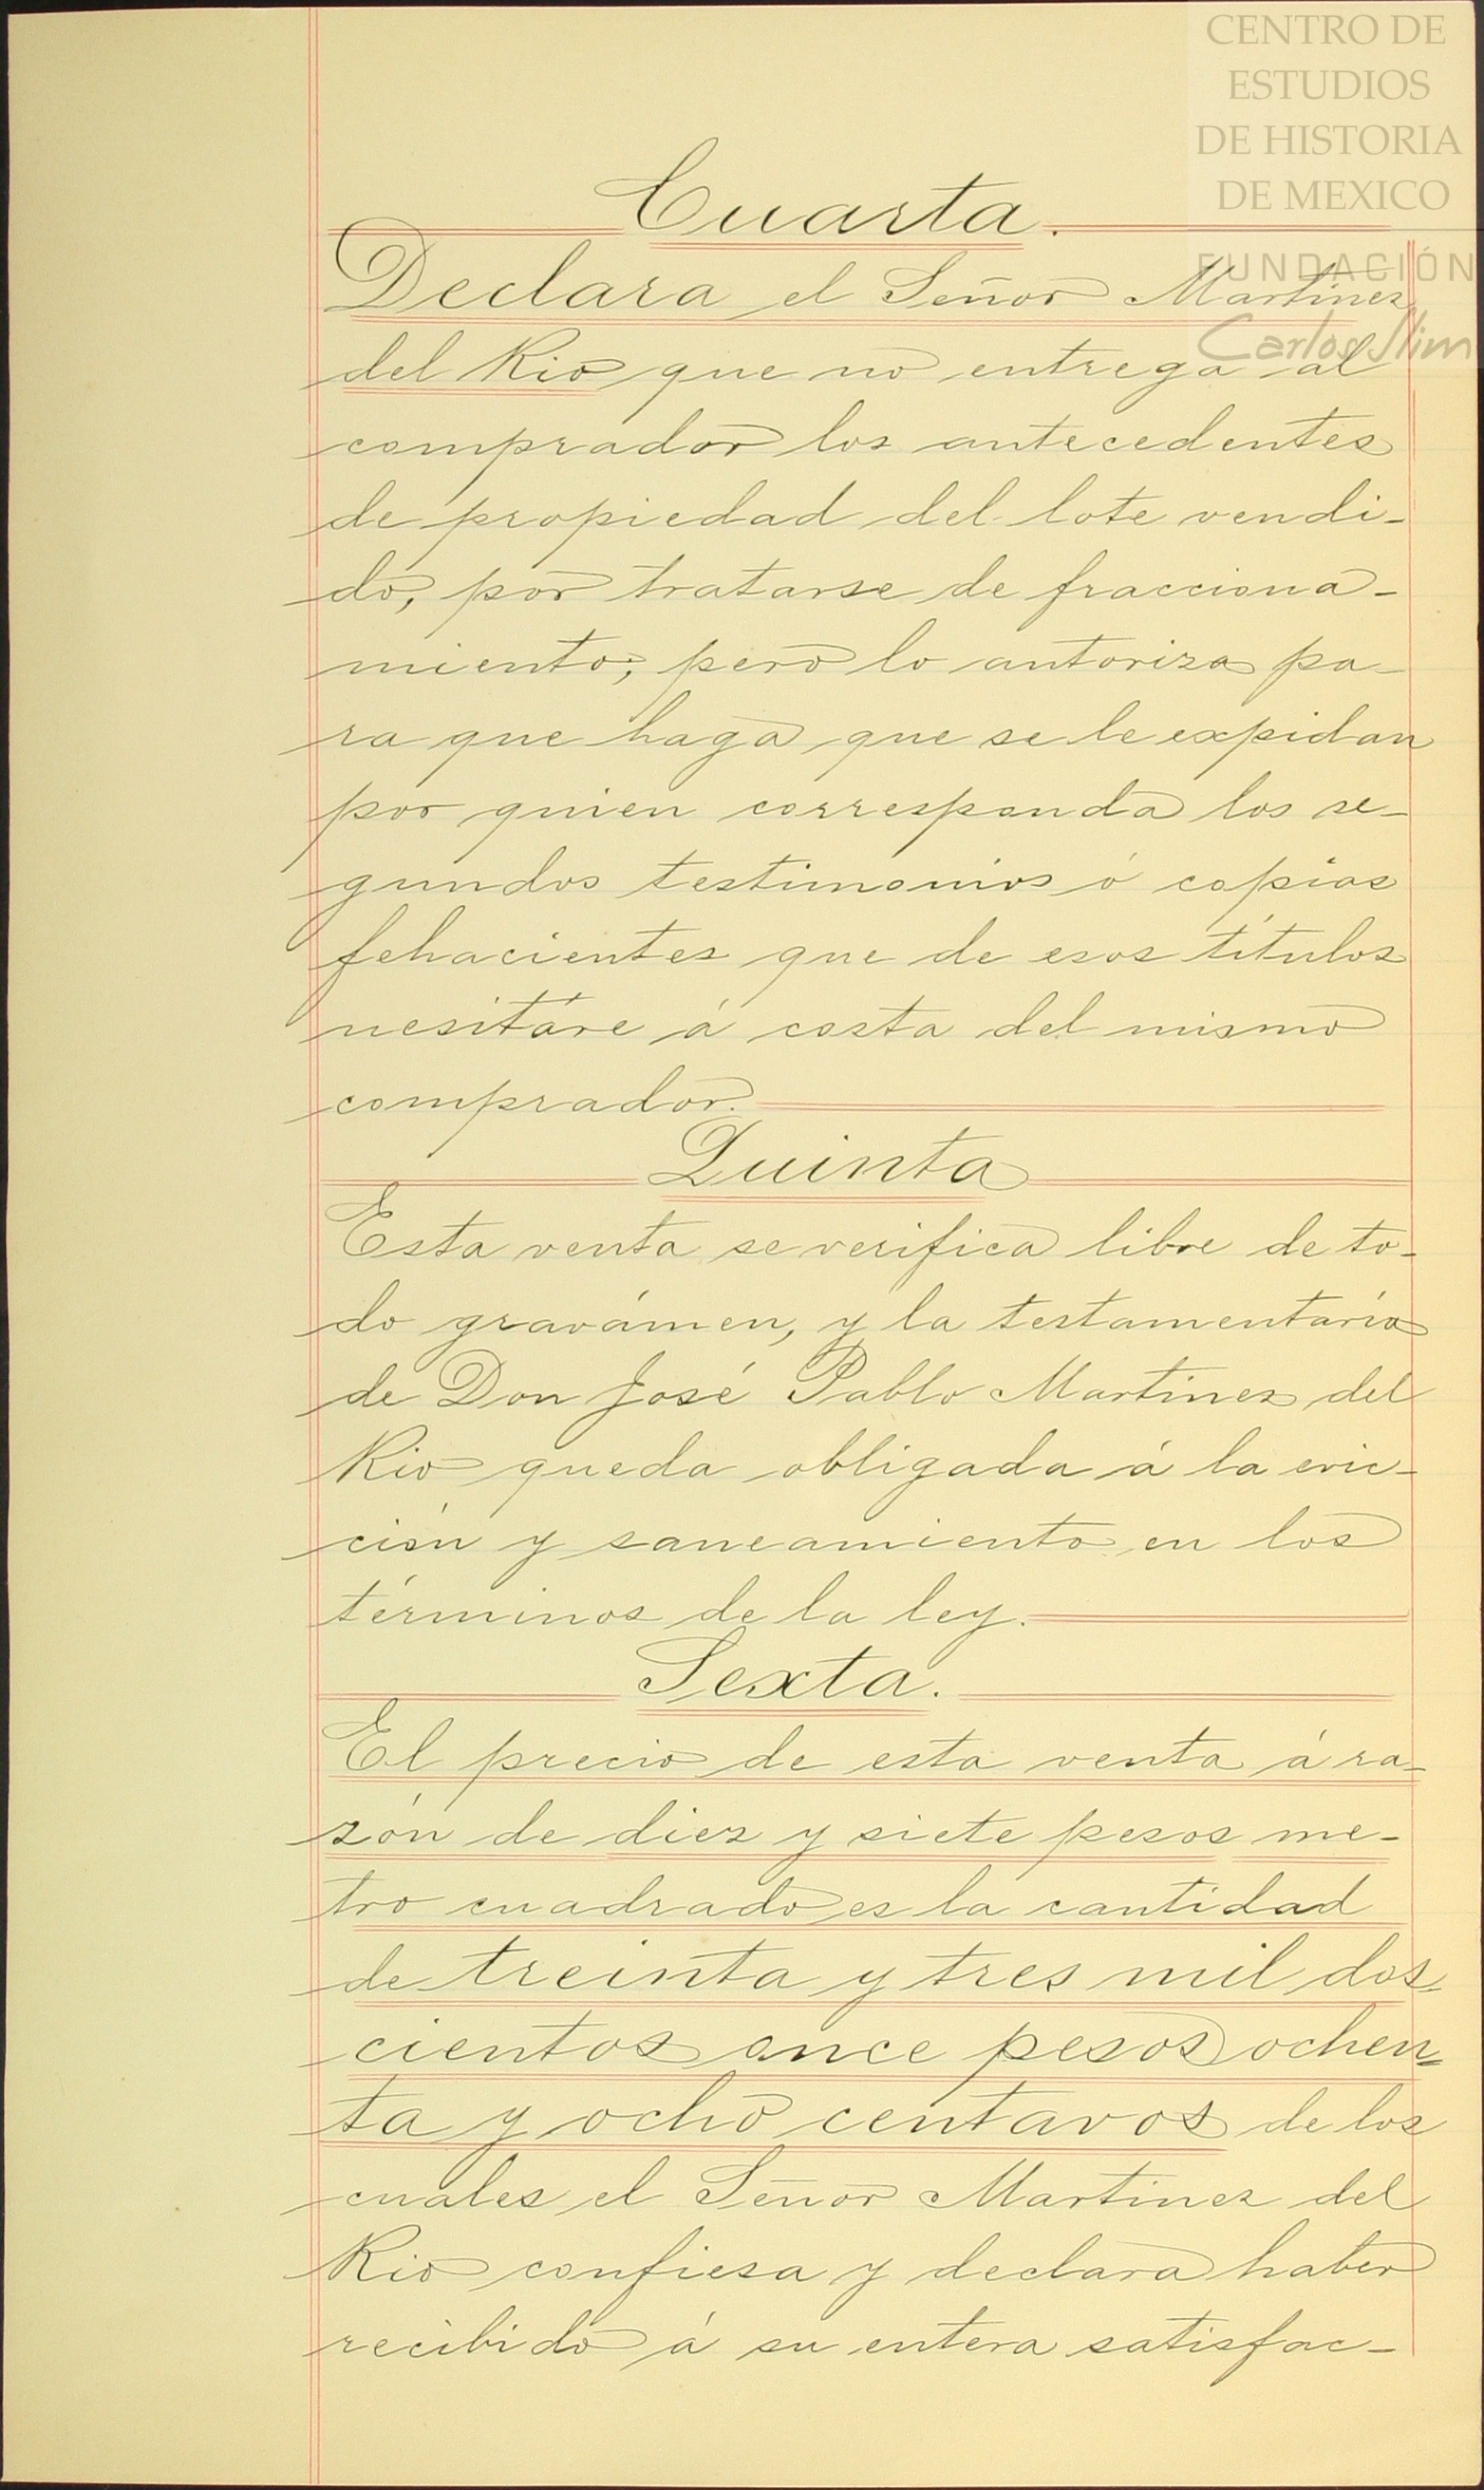 CENTRO DE
ESTUDIOS
DE HISTORIA
DE MEXICO
FUNDACIÓN
Carlos Slim
Cuarta.
Declara el Señor Martinez
del Rio que no entrega al
comprador los antecedentes
de propiedad del lote vendi-
do, por tratarse de fracciona-
miento; pero lo autoriza pa-
ra que haga que se le expidan
por quien corresponda los se-
gundos testimonios ó copias
fehacientes que de esos títulos
nesitáre á costa del mismo
comprador.
Quinta
Esta venta se verifica libre de to-
do gravámen, y la testamentaría
de Don José Pablo Martinez del
Rio queda obligada á la evic-
ción y saneamiento en los
términos de la ley.
Sexta.
El precio de esta venta á ra-
zón de diez y siete pesos me-
tro cuadrado es la cantidad
de treinta y tres mil dos-
cientos once pesos ochen-
ta y ocho centavos de los
cuales el Señor Martinez del
Rio confiesa y declara haber
recibido á su entera satisfac-